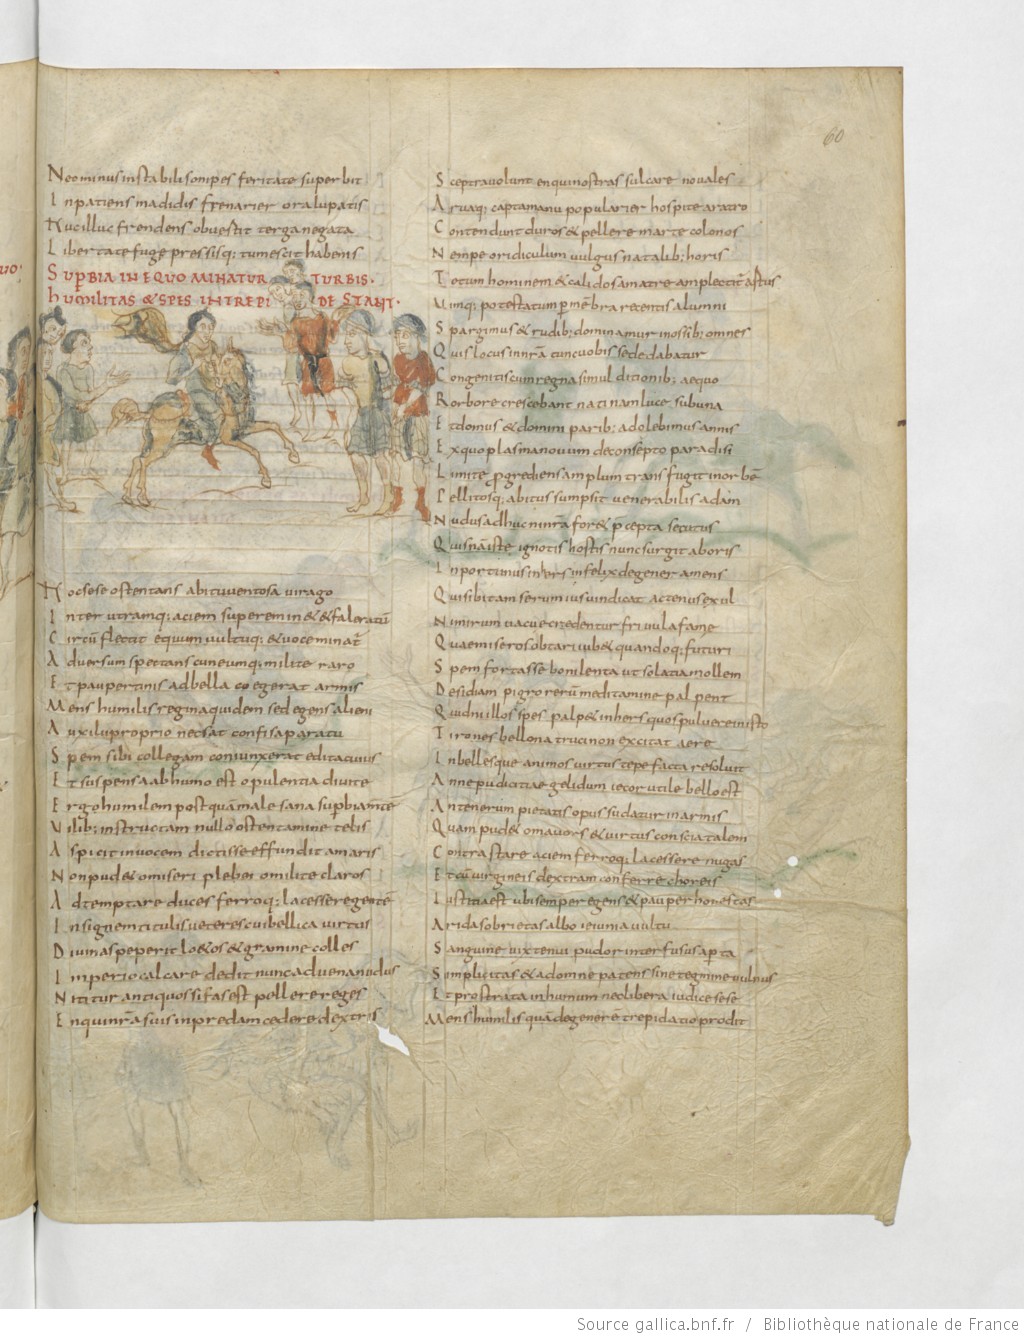 60
Nec minus instabili sompes feritate superbit
Inpatiens madidis frenarier ora lupatis
Huc illuc frendens obuertit terga negata
Libertate fuge pressisq; tumescit habenis
SUPBIA IN EQUO MINATUR TURBIS.
HUMILITAS & SPES INTREPIDE STANT.
Hoc sese ostentans abitu uentosa uirago
Inter utramq; aciem supereminet & faleratū
Circū flectit equum uultuq; & uoce minat̄
Aduersum spectans cuneum q; milite raro
Et paupertinis ad bella coegerat armis
Mens humilis regina quidem sed egens alieni
Auxilu proprio nec sat confisa paratu
Spem sibi collegam coniunxerat edita cuius
Et suspensa ab humo est opulentia diuite
Ergo humilem postquā male sana supbia mce
Uilib; instructam nullo ostentamine telis
Aspicit in uocem dictis se effundit amaris
Non pud& o miseri plebeio milite claros
Adtemptare duces ferroq; lacessere gentē
Insignem titulis ueteres cui bellica uirtus
Diuitias peperit l&os & gramine colles
Imperio calcare dedit nunc aduena nudus
Nititur antiquos si fas est pellere reges
En qui nr̄a suis in predam cedere dextris
Sceptra uolunt en qui nostras sulcare nouales
Aruaq; capta manu popularier hospite aratro
Contendunt duros & pellere marte colonos
Nempe o ridiculum uulgus natalib; horis
Totum hominem & calidos a matre amplectit̄ artus
Uimq; potestatum p mēbra recentis alumni
Spargimus & rudib; dominamur in ossib; omnes
Quis locus in nr̄a tunc uobis sede dabatur
Congenitis cum regna simul ditionib; aequo
Rorbore crescebant nati nam luce sub una
Et domus & domini parib; adolebimus annis
Ex quo plasma nouum de consepto paradisi
Limite pgrediens amplum transfugit in orbē
Pellitosq; abitus sumpsit uenerabilis adam
Nudus adhuc ni nr̄a for& p̄cepta secutus
Quisnā iste ignotis hostis nunc surgit ab oris
Inportunus inhers infelix degener amens
Qui sibi tam serum ius uindicat actenus exul
Nimirum uacue credentur friuula fame
Quae miseros obtare iub& quandoq; futuri
Spem fortasse boni lenta ut solatia mollem
Desidiam pigro rerū meditamine palpent
Quidni illos spes palp& inhers quos puluere in isto
Tirones bellona truci non excitat aere
Inbellesque animos uirtus tepefacta resoluit
Anne pudicitiae gelidum iecor utile bello est
An tenerum pietatis opus sudatur in armis
Quam pud& o mauors & uirtus conscia talem
Contra stare aciem ferroq; lacessere nugas
Et cū uirgineis dextram conferre choreis
Iustitia est ubi semper egens & pauper honestas
Arida sobrietas albo ieiunia uultu
Sanguine uix tenui pudor interfusus apta
Simplicitas & ad omne patens sine tegmine uulnus
Et prostrata in humum nec libera iudice sese
Mens humilis quā degenerē trepidatio prodit
Source gallica.bnf.fr / Bibliothèque nationale de France